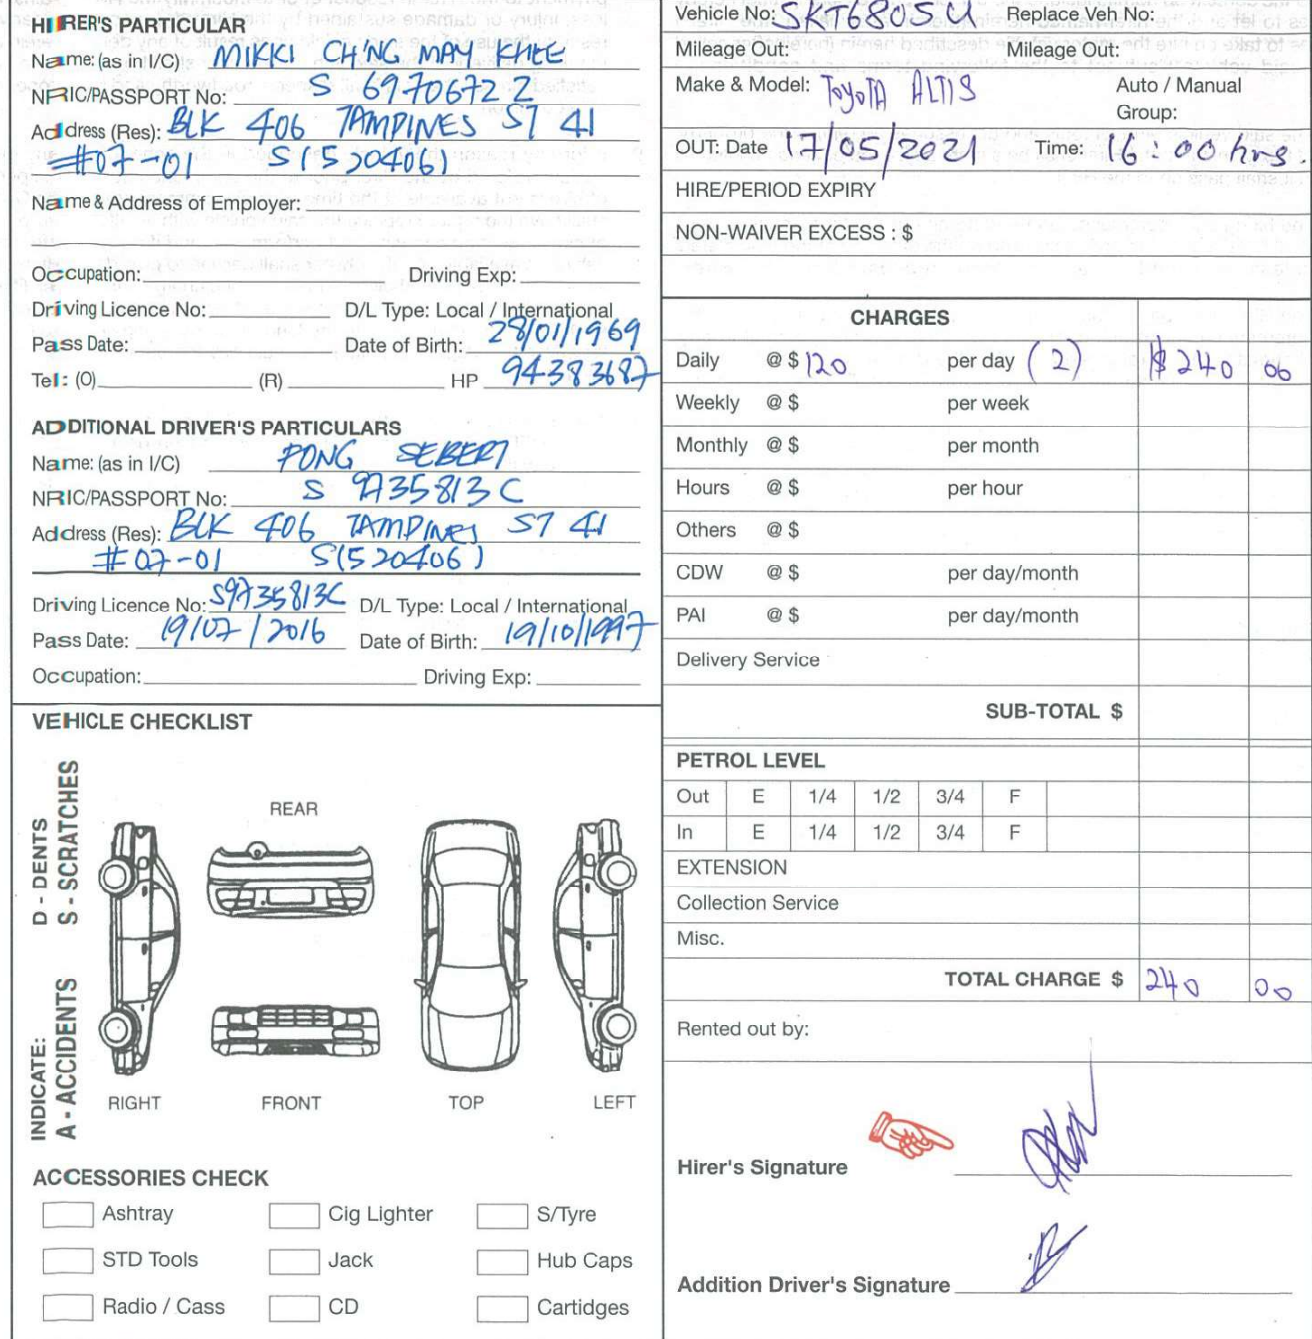 HIRER'S PARTICULAR
Name: (as in I/C) MIKKI CH'NG MAY KHEE
NRIC/PASSPORT No: S 6970672 Z
Address (Res): BLK 406 TAMPINES ST 41
#07-01 S(520406)
Name & Address of Employer:
Occupation: Driving Exp:
Driving Licence No: D/L Type: Local / International
Pass Date: Date of Birth: 28/01/1969
Tel: (O) (R) HP 94383687
ADDITIONAL DRIVER'S PARTICULARS
Name: (as in I/C) PONG SEBERT
NRIC/PASSPORT No: S 9735813 C
Address (Res): BLK 406 TAMPINES ST 41
#07-01 S(520406)
Driving Licence No: S9735813C D/L Type: Local / International
Pass Date: 19/07/2016 Date of Birth: 19/10/1997
Occupation: Driving Exp:
VEHICLE CHECKLIST
INDICATE: D - DENTS
A - ACCIDENTS S - SCRATCHES
REAR
RIGHT FRONT TOP LEFT
ACCESSORIES CHECK
Ashtray Cig Lighter S/Tyre
STD Tools Jack Hub Caps
Radio / Cass CD Cartidges
Vehicle No: SKT6805M Replace Veh No:
Mileage Out: Mileage Out:
Make & Model: TOYOTA ALTIS Auto / Manual
Group:
OUT: Date 17/05/2021 Time: 16:00 hrs.
HIRE/PERIOD EXPIRY
NON-WAIVER EXCESS : $
CHARGES
Daily @ $ 120 per day (2) $240 00
Weekly @ $ per week
Monthly @ $ per month
Hours @ $ per hour
Others @ $
CDW @ $ per day/month
PAI @ $ per day/month
Delivery Service
SUB-TOTAL $
PETROL LEVEL
Out E 1/4 1/2 3/4 F
In E 1/4 1/2 3/4 F
EXTENSION
Collection Service
Misc.
TOTAL CHARGE $ 240 00
Rented out by:
Hirer's Signature
Addition Driver's Signature